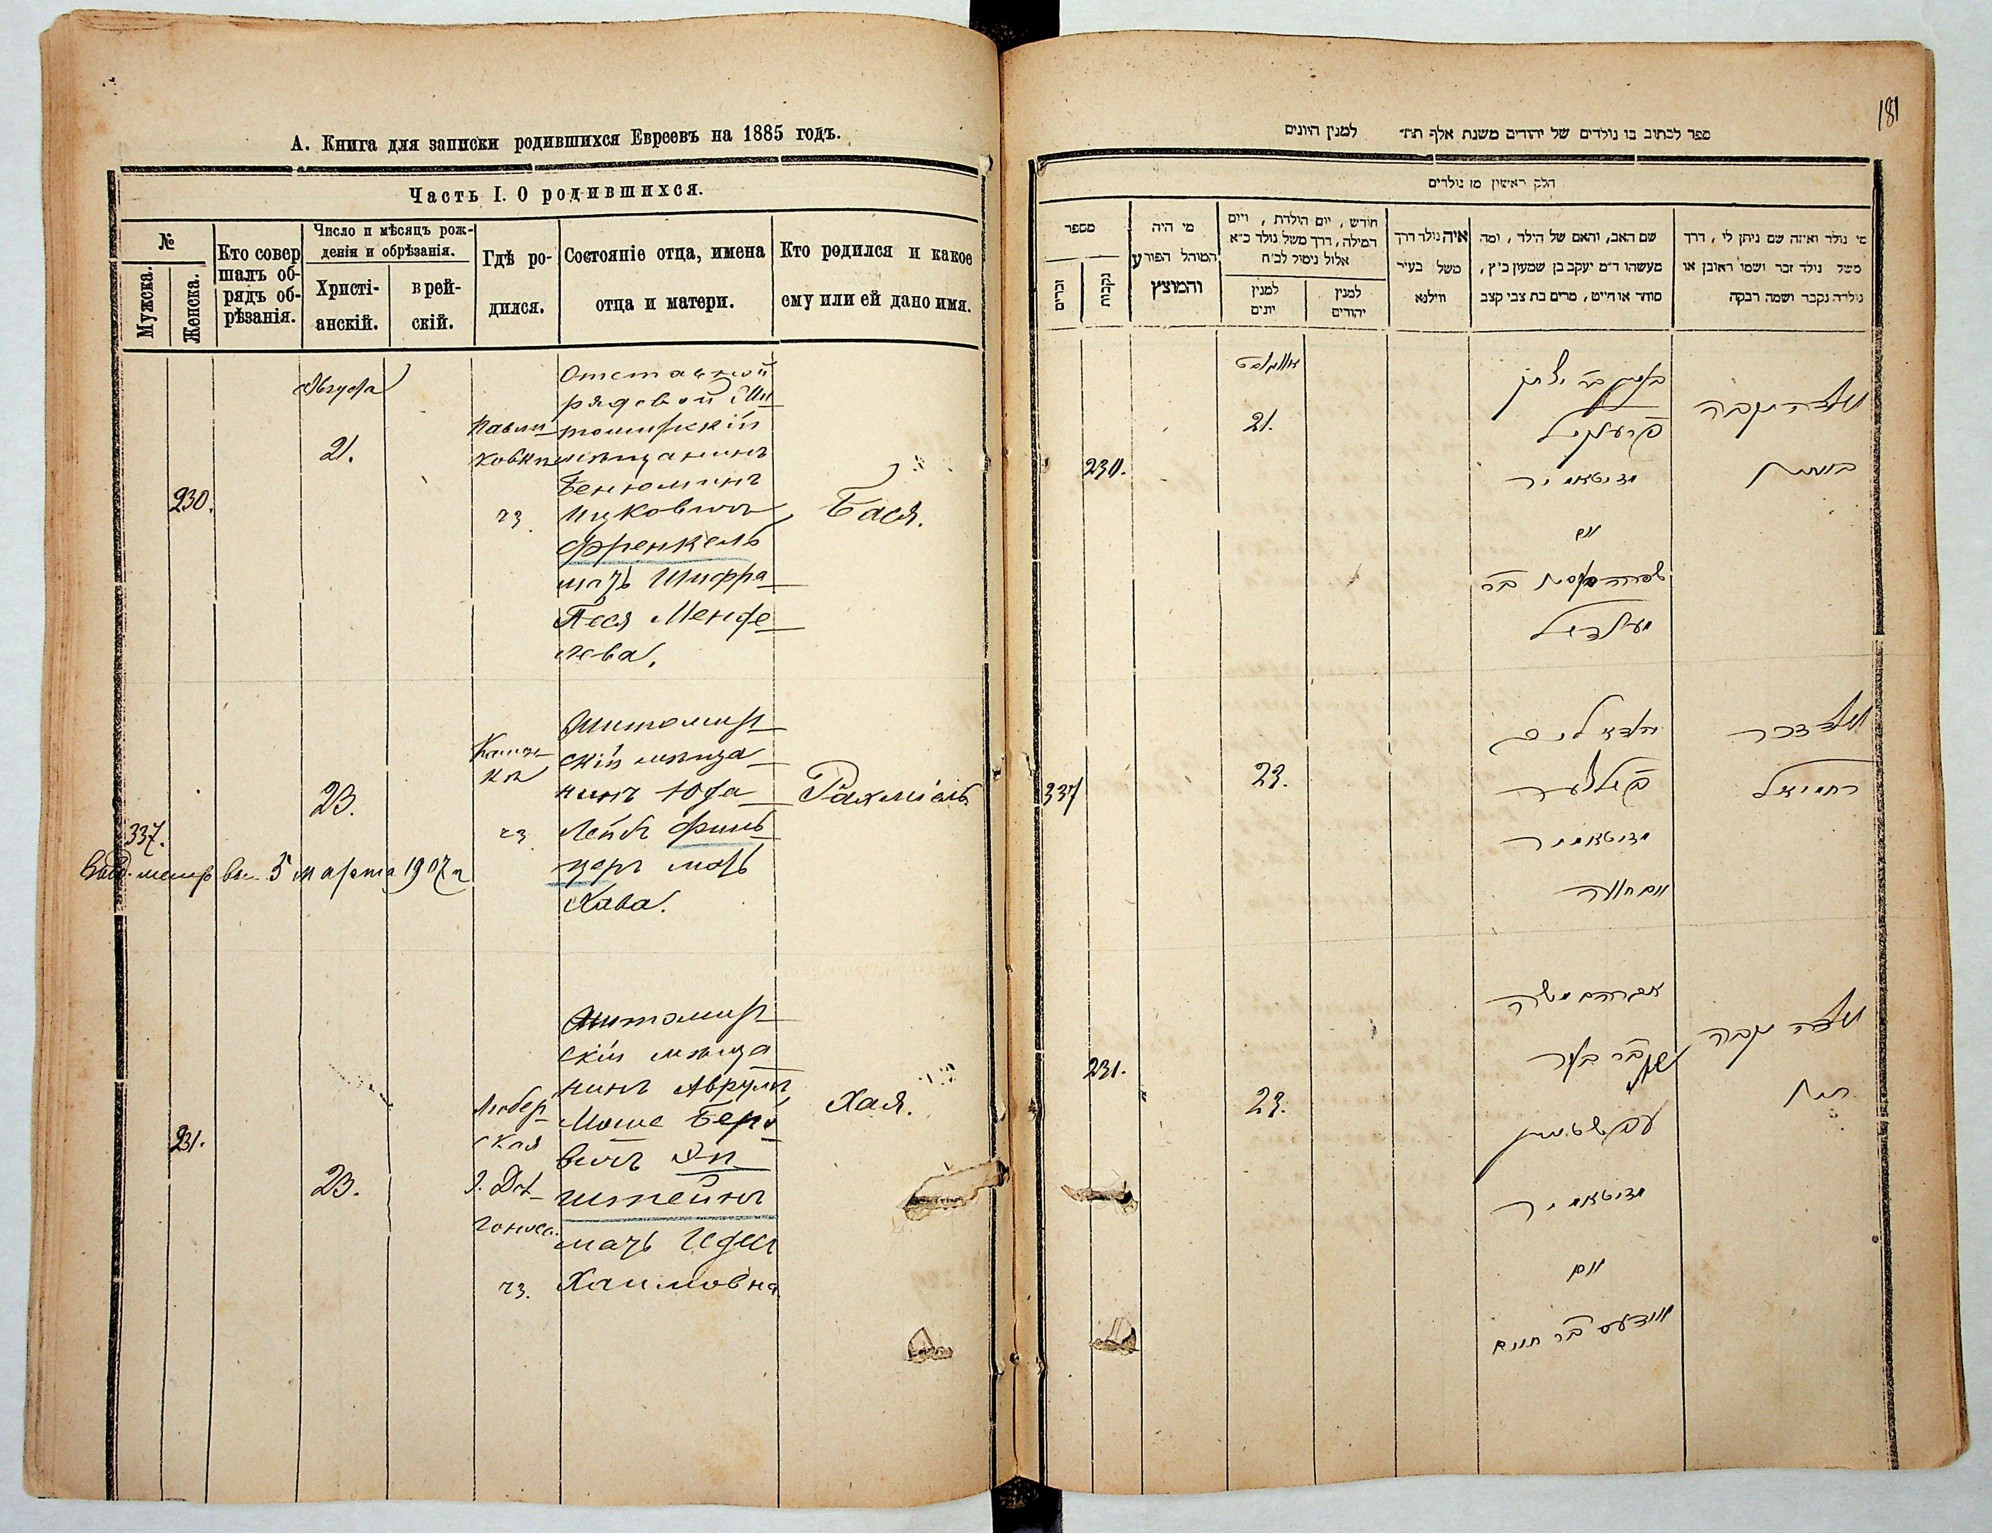 А. Книга для записки родившихся Евреевъ на 1885 годъ.
Часть I. О родившихся.
№
Мужска.
Женска.
Кто совер
шалъ об-
рядъ об-
рѣзанія.
Число и мѣсяцъ рож-
денія и обрѣзанія.
Христі-
анскій.
врей-
скій.
Гдѣ ро-
дился.
Состояніе отца, имена
отца и матери.
Кто родился и какое
ему или ей дано имя.
230.
Августа
21.
чз.
Отставной
рядовой Жи
томирскій
мѣщанинъ
Бенюминъ
Ицковичъ
Френкель
мать Шифра
Песя Менде
лева.
Бася.
337.
23.
чз
Житомир
скій мѣща
нинъ Юда
Лейб Филь
церъ мать
Хава.
Рахміель
марта 1907 г
231.
23.
чз.
Житомир
скій мѣща
нинъ Аврумъ
Моше Берко
вичъ Эп
штейнъ
мать
Хаимовна
Хая.
181
ספר לכתוב בו נולדים של יהודים משנת אלף תת״ למנין היונים
חלק ראשון מן נולדים
מספר
זכרים
נקבות
מי היה
המוהל הפורע
והמוצץ
חודש, יום הולדת, ויום
המילה, דרך משל נולד כ״א
אלול נימול לכ״ח
למנין
יונים
למנין
יהודים
איה נולד דרך
משל בעיר
ווילנא
שם האב, והאם של הילד, ומה
מעשהו ד״מ יעקב בן שמעון כ״ץ,
סוחר או חייט, מרים בת צבי קצב
מי נולד ואיזה שם ניתן לו, דרך
משל נולד זכר ושמו ראובן או
נולדה נקבה ושמה רבקה
230.
אווגוסט
21.
פרענקיל
זיטאמיר
ואם
מענדיל
נולדה נקבה
337
23.
זיטאמיר
ואם חוה
נולד זכר
רחמיאל
231.
23.
אברהם משה
עפשטיין
זיטאמיר
ואם
בר חיים
נולדה נקבה
חיה